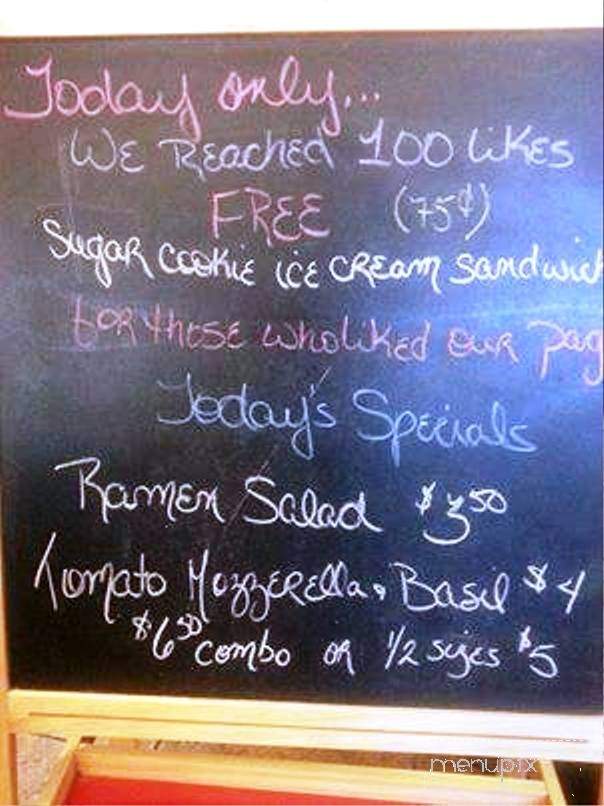 Today only...
We Reached 100 likes
FREE (75¢)
Sugar Cookie ice cream sandwich
for those who liked our pag
Today's Specials
Ramen Salad $3.50
Tomato Mozzerella & Basil $4
$6.50 combo or 1/2 sizes $5
menupix